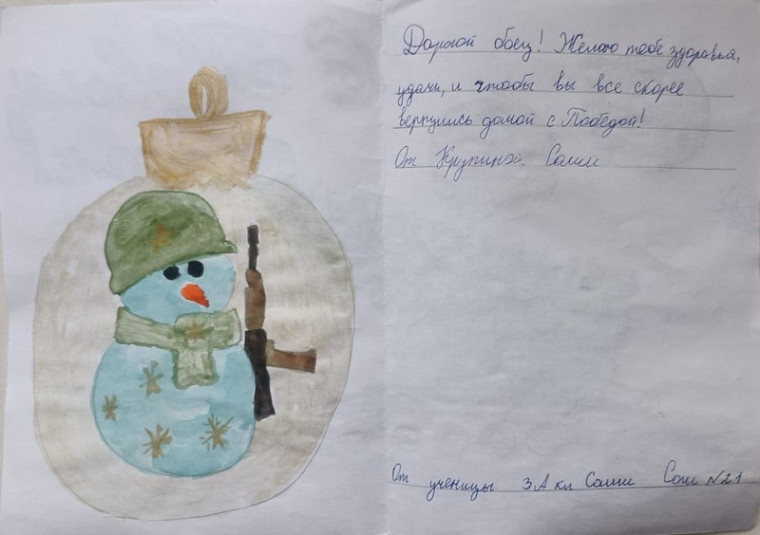 Дорогой боец! Желаю тебе здоровья,
удачи, и чтобы вы все скорее
вернулись домой с Победой!
От Крупина Саши
От ученицы 3 А кл Саши Сош №21